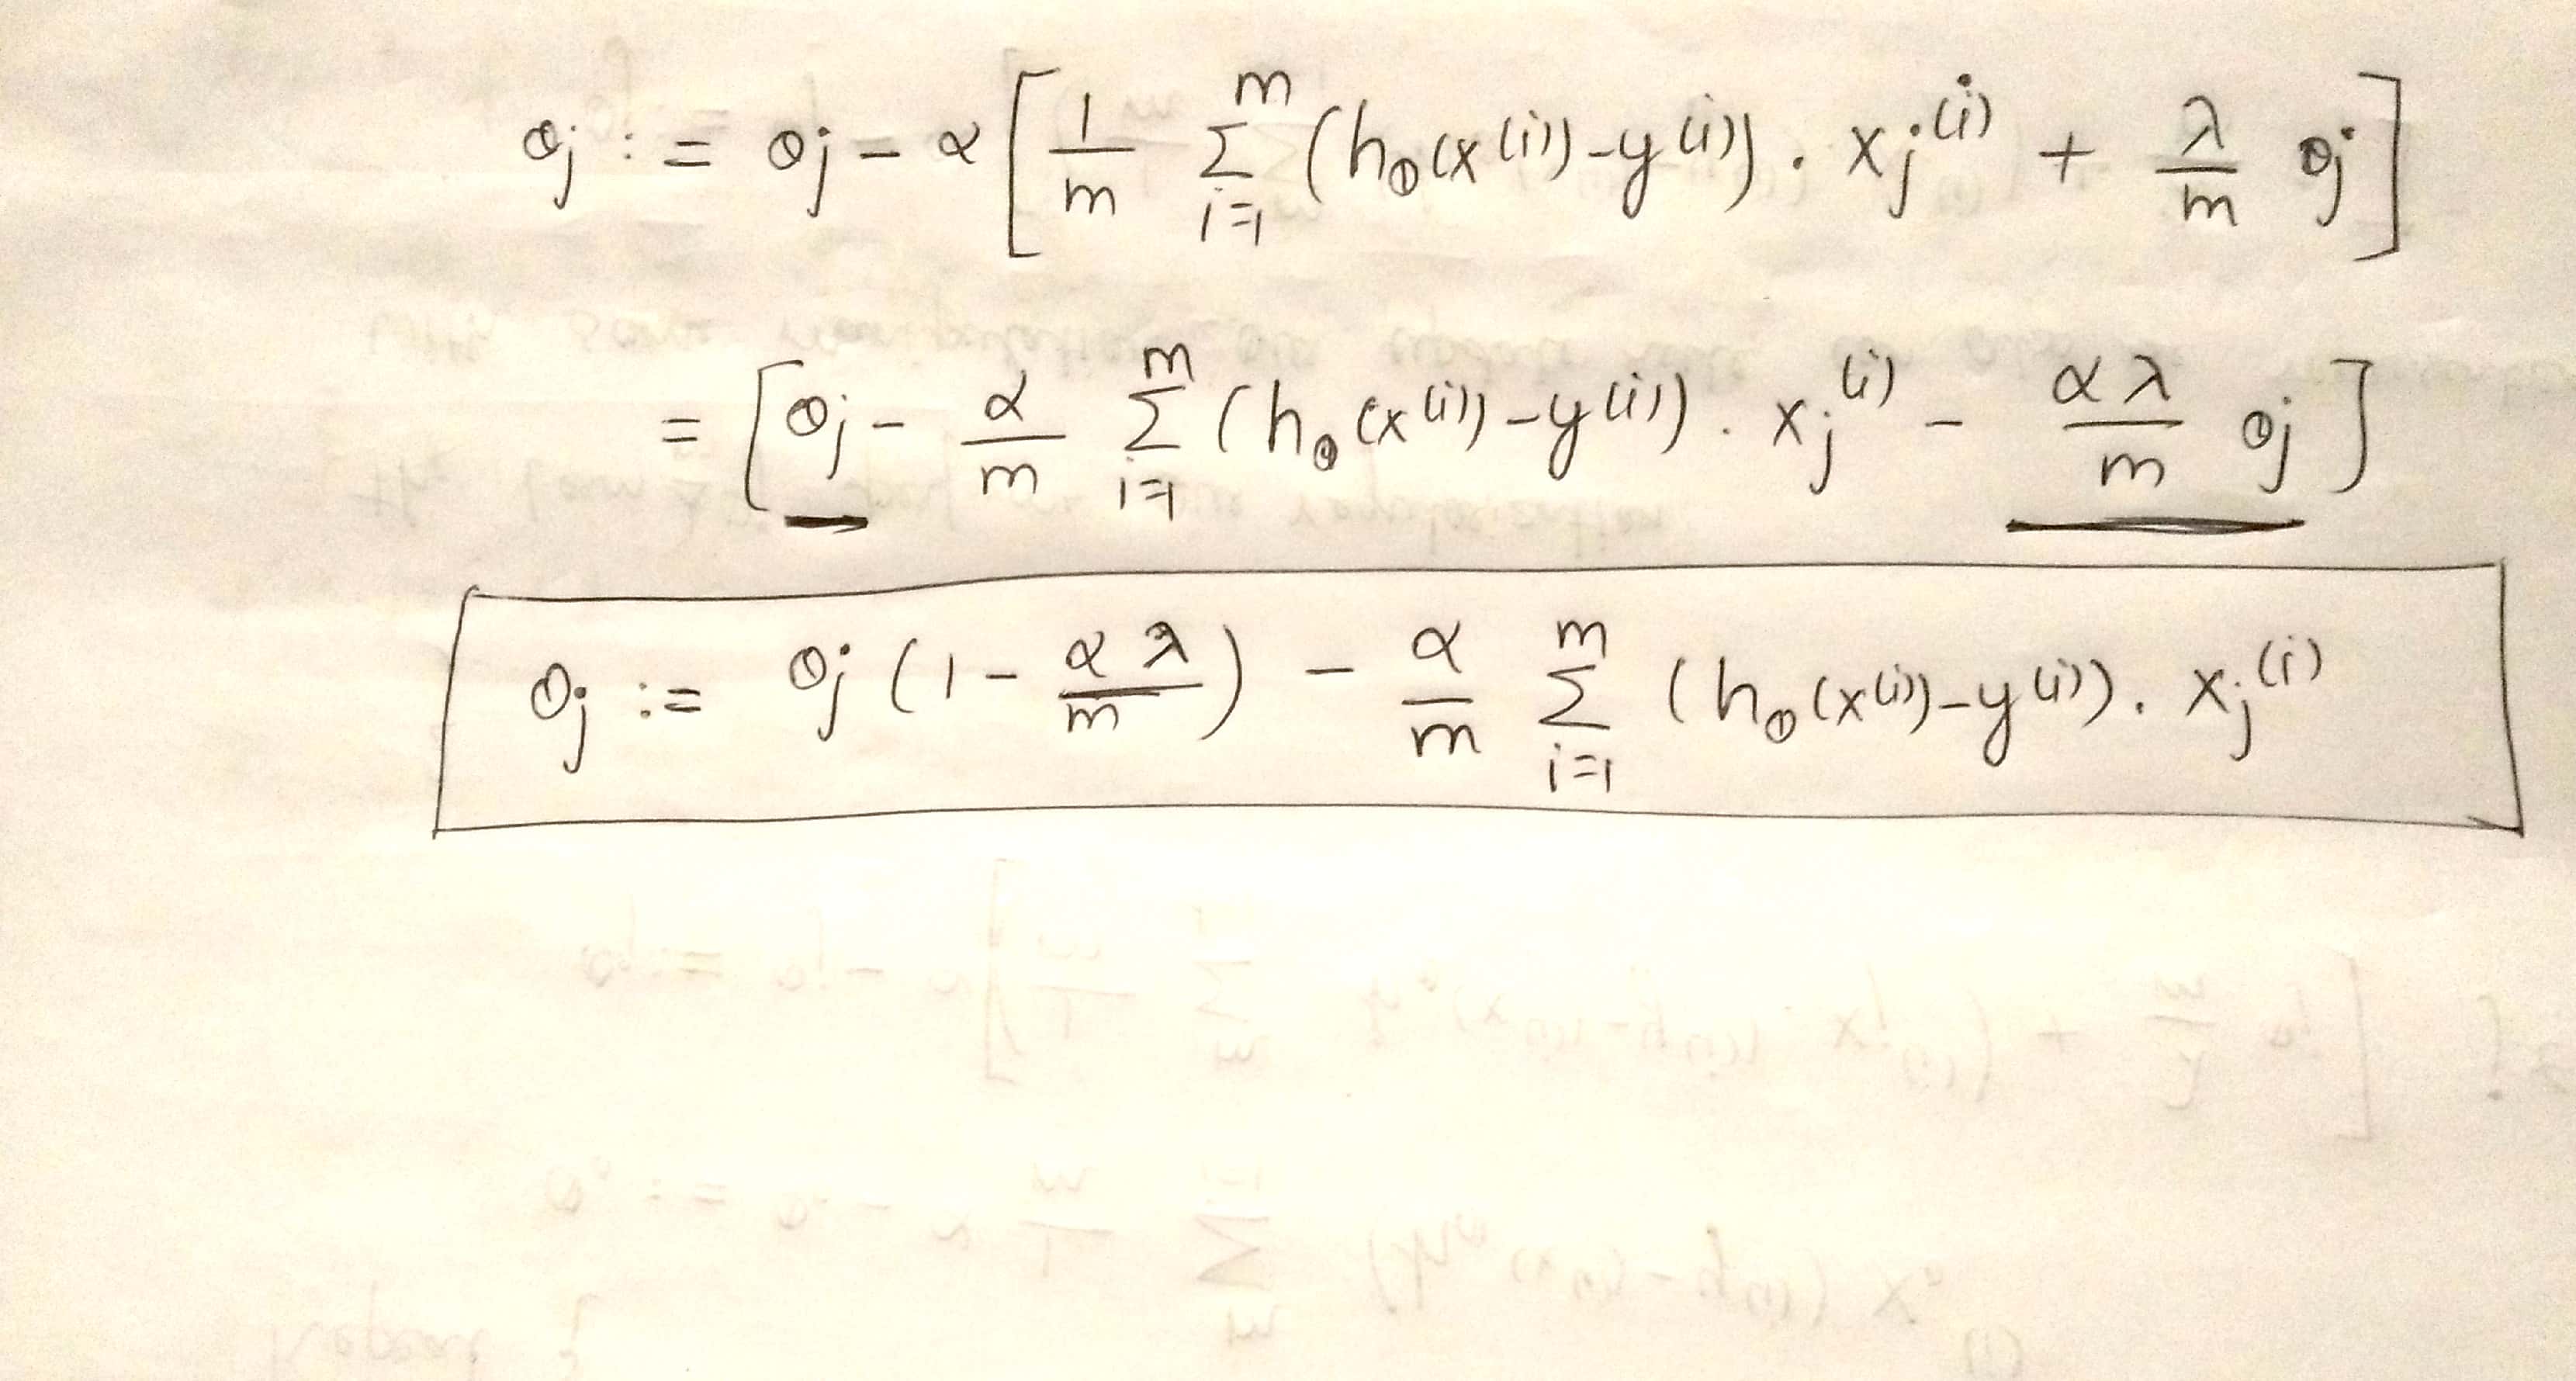 θj := θj - α [ 1/m Σ_{i=1}^{m} (hθ(x^(i)) - y^(i)) . xj^(i) + λ/m θj ]
= [ θj - α/m Σ_{i=1}^{m} (hθ(x^(i)) - y^(i)) . xj^(i) - αλ/m θj ]
θj := θj (1 - αλ/m) - α/m Σ_{i=1}^{m} (hθ(x^(i)) - y^(i)) . xj^(i)